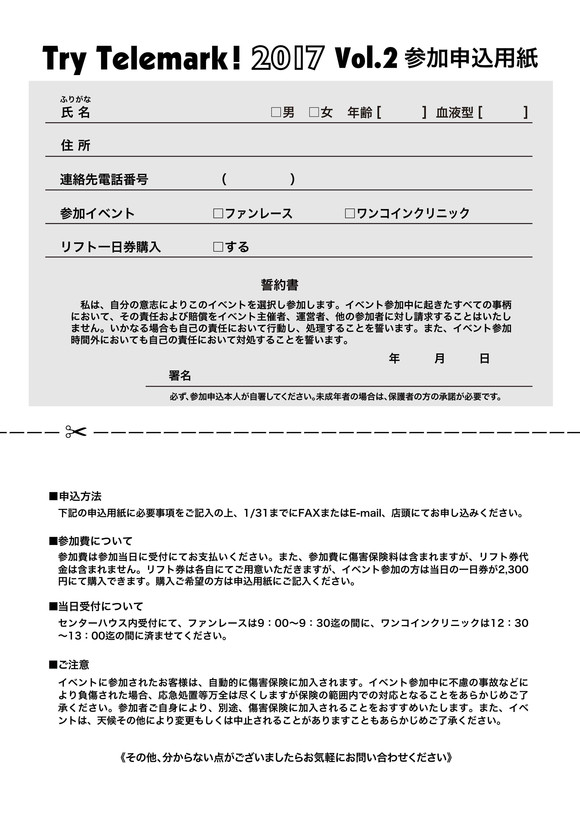 Try Telemark! 2017 Vol.2 参加申込用紙
ふりがな
氏 名 □男 □女 年齢 [ ] 血液型 [ ]
住 所
連絡先電話番号 ( )
参加イベント □ファンレース □ワンコインクリニック
リフト一日券購入 □する
誓約書
私は、自分の意志によりこのイベントを選択し参加します。イベント参加中に起きたすべての事柄
において、その責任および賠償をイベント主催者、運営者、他の参加者に対し請求することはいたし
ません。いかなる場合も自己の責任において行動し、処理することを誓います。また、イベント参加
時間外においても自己の責任において対処することを誓います。
年 月 日
署名
必ず、参加申込本人が自署してください。未成年者の場合は、保護者の方の承諾が必要です。
■申込方法
下記の申込用紙に必要事項をご記入の上、1/31までにFAXまたはE-mail、店頭にてお申し込みください。
■参加費について
参加費は参加当日に受付にてお支払いください。また、参加費に傷害保険料は含まれますが、リフト券代
金は含まれません。リフト券は各自にてご用意いただきますが、イベント参加の方は当日の一日券が2,300
円にて購入できます。購入ご希望の方は申込用紙にご記入ください。
■当日受付について
センターハウス内受付にて、ファンレースは9：00～9：30迄の間に、ワンコインクリニックは12：30
～13：00迄の間に済ませてください。
■ご注意
イベントに参加されたお客様は、自動的に傷害保険に加入されます。イベント参加中に不慮の事故などに
より負傷された場合、応急処置等万全は尽くしますが保険の範囲内での対応となることをあらかじめご了
承ください。参加者ご自身により、別途、傷害保険に加入されることをおすすめいたします。また、イベ
ントは、天候その他により変更もしくは中止されることがありますこともあらかじめご了承ください。
《その他、分からない点がございましたらお気軽にお問い合わせください》